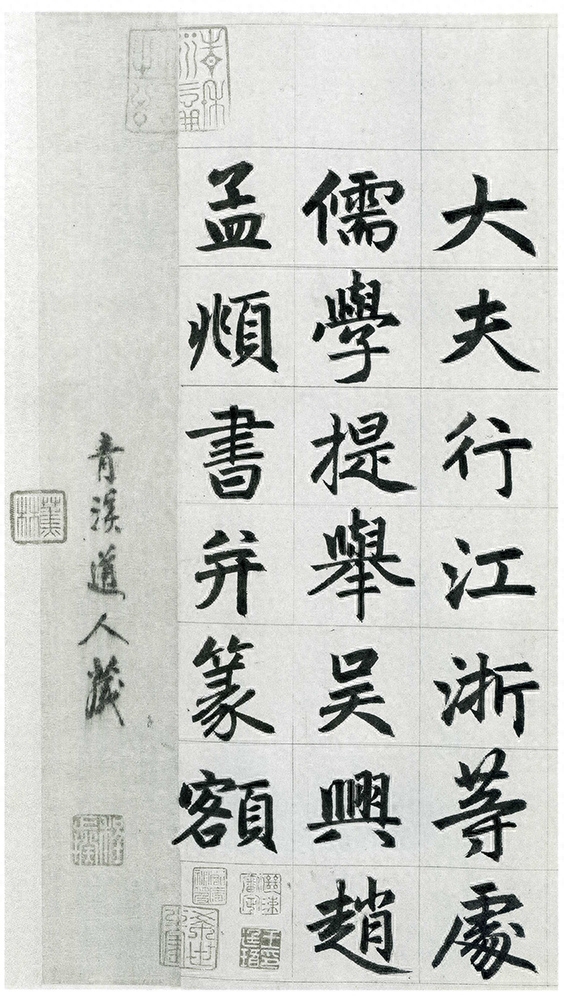 大夫行江浙等處
儒學提舉吳興趙
孟頫書并篆額
青溪道人藏
蕉林